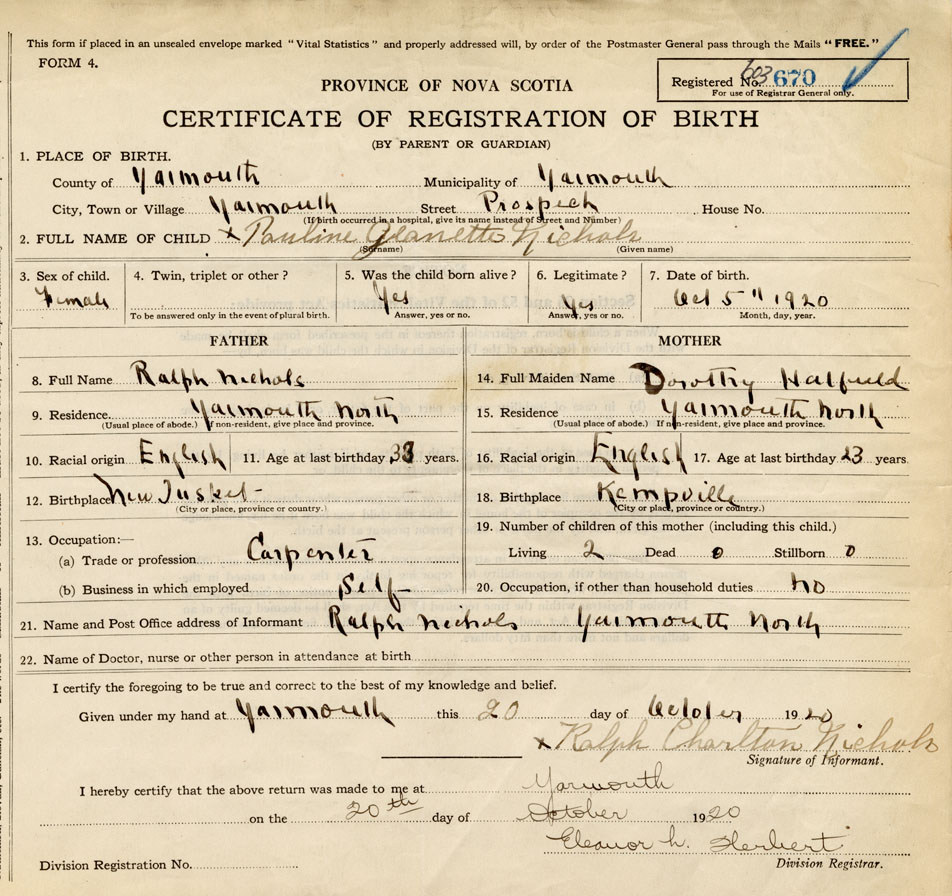 This form if placed in an unsealed envelope marked "Vital Statistics" and properly addressed will, by order of the Postmaster General pass through the Mails "FREE."
FORM 4.
PROVINCE OF NOVA SCOTIA
Registered No. 603 670
For use of Registrar General only.
CERTIFICATE OF REGISTRATION OF BIRTH
(BY PARENT OR GUARDIAN)
1. PLACE OF BIRTH.
County of Yarmouth Municipality of Yarmouth
City, Town or Village Yarmouth Street Prospech House No.
(If birth occurred in a hospital, give its name instead of Street and Number)
2. FULL NAME OF CHILD x Pauline Jeanette Nichols
(Surname) (Given name)
3. Sex of child. 4. Twin, triplet or other? 5. Was the child born alive? 6. Legitimate? 7. Date of birth.
Female Yes Yes Oct 5" 1920
To be answered only in the event of plural birth. Answer, yes or no. Answer, yes or no. Month, day, year.
FATHER MOTHER
8. Full Name Ralph Nichols 14. Full Maiden Name Dorothy Hatfield
9. Residence. Yarmouth North 15. Residence Yarmouth North
(Usual place of abode.) If non-resident, give place and province. (Usual place of abode.) If non-resident, give place and province.
10. Racial origin English 11. Age at last birthday 33 years. 16. Racial origin English 17. Age at last birthday 23 years.
12. Birthplace New Tusket 18. Birthplace Kempville
(City or place, province or country.) (City or place, province or country.)
13. Occupation:— 19. Number of children of this mother (including this child.)
(a) Trade or profession Carpenter Living 2 Dead 0 Stillborn 0
(b) Business in which employed Self 20. Occupation, if other than household duties No
21. Name and Post Office address of Informant Ralph Nichols Yarmouth North
22. Name of Doctor, nurse or other person in attendance at birth
I certify the foregoing to be true and correct to the best of my knowledge and belief.
Given under my hand at Yarmouth this 20 day of October 1920
x Ralph Charlton Nichols
Signature of Informant.
I hereby certify that the above return was made to me at Yarmouth
on the 20th day of October 1920
Eleanor h. Herbert
Division Registration No. Division Registrar.